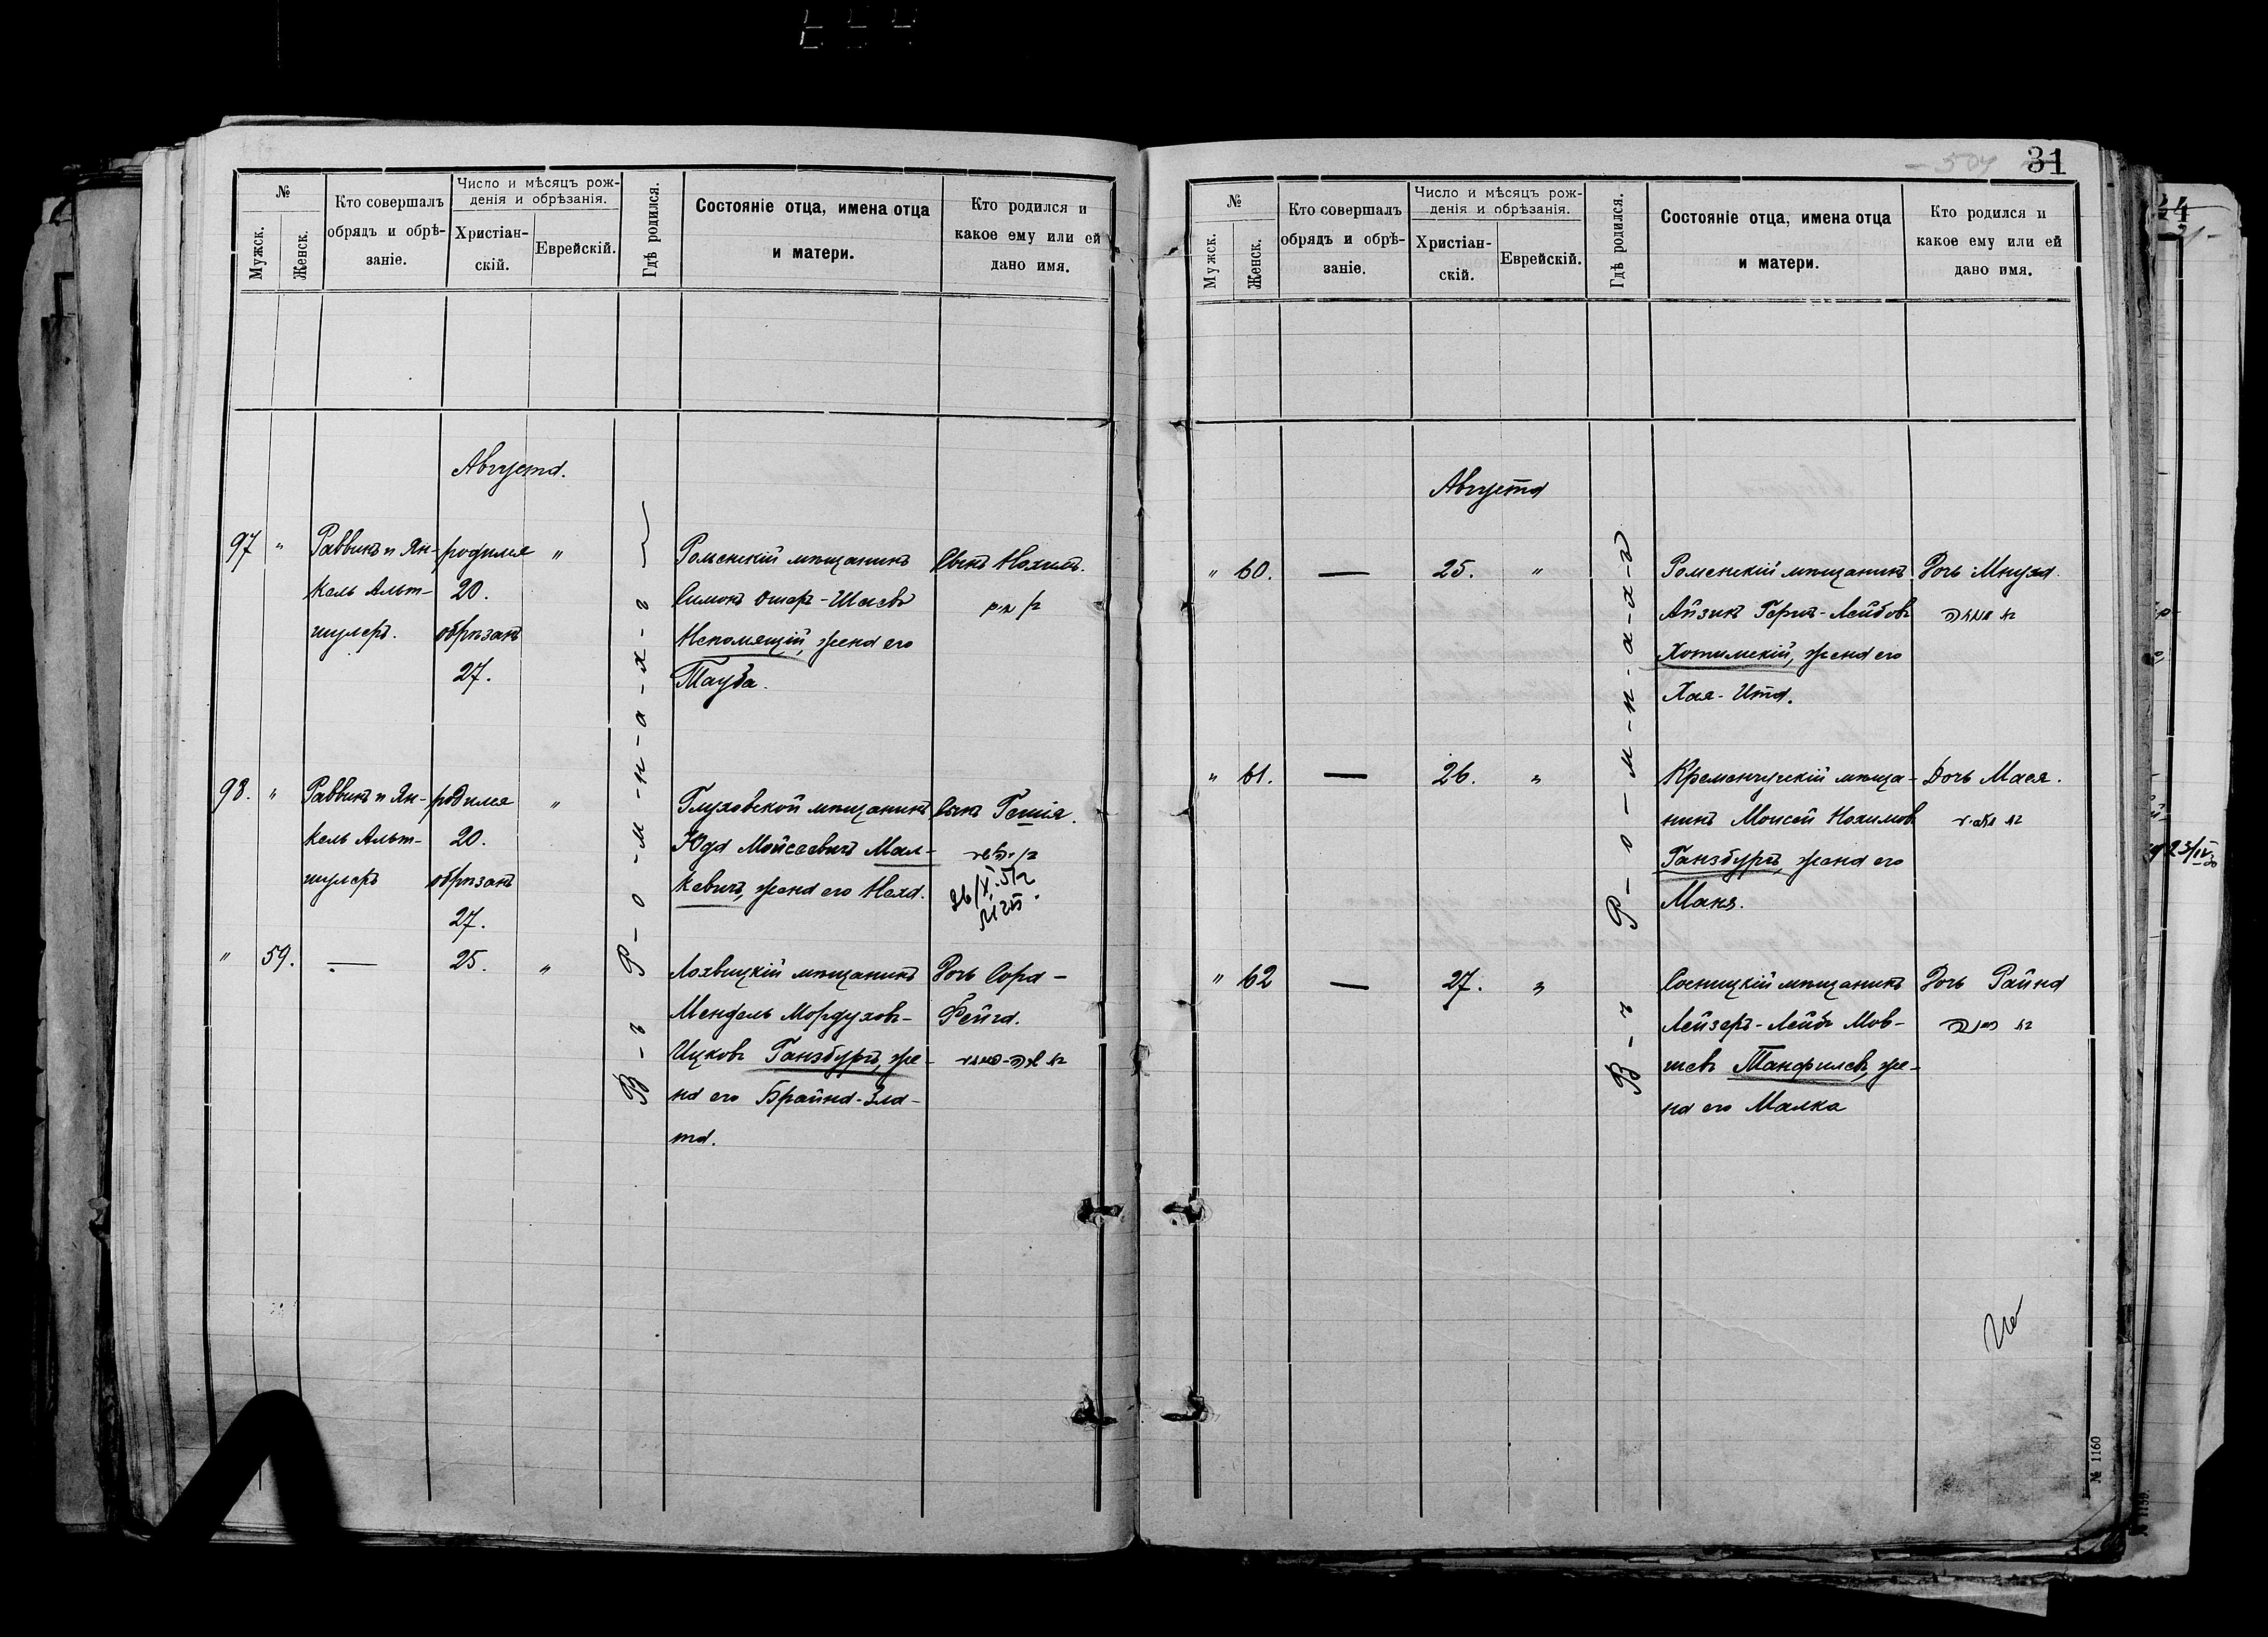 №
Мужск.
Женск.
Кто совершалъ
обрядъ и обрѣ-
заніе.
Число и мѣсяцъ рож-
денія и обрѣзанія.
Христіан-
скій.
Еврейскій.
Гдѣ родился.
Состояніе отца, имена отца
и матери.
Кто родился и
какое ему или ей
дано имя.
Августа.
В-ъ Р-о-м-н-а-х-ъ
97 "
Раввинъ и Ян-
кель Альт-
шулеръ.
родился
20.
обрѣзанъ
27.
"
Роменскій мѣщанинъ
Симонъ Ошеръ-Шаевъ
Непомящій, жена его
Тауба.
Сынъ Нохимъ.
98. "
Раввинъ и Ян-
кель Альт-
шулеръ
родился
20.
обрѣзанъ
27.
"
Глуховской мѣщанинъ
Юда Мойсеевичъ Мал-
кевичъ, жена его Неха.
Сынъ Гешія.
" 59.
—
25.
"
Лохвицкій мѣщанинъ
Мендель Мордуховъ-
Ицковъ Ганзбургъ, же-
на его Брайна-Зла-
та.
Дочь Сора-
Фейга.
31
№
Мужск.
Женск.
Кто совершалъ
обрядъ и обрѣ-
заніе.
Число и мѣсяцъ рож-
денія и обрѣзанія.
Христіан-
скій.
Еврейскій.
Гдѣ родился.
Состояніе отца, имена отца
и матери.
Кто родился и
какое ему или ей
дано имя.
Августа
В-ъ Р-о-м-н-а-х-ъ
" 60.
—
25.
"
Роменскій мѣщанинъ
Айзикъ Герцъ-Лейбовъ
Хотимскій, жена его
Хая-Ита.
Дочь Мнуха.
" 61.
—
26.
"
Кременчугскій мѣща-
нинъ Моисей Нохимовъ
Ганзбургъ, жена его
Маня.
Дочь Мася.
" 62
—
27.
"
Сосницкій мѣщанинъ
Лейзеръ-Лейбъ Мов-
шевъ Танфилевъ, же-
на его Малка
Дочь Райна
№ 1160